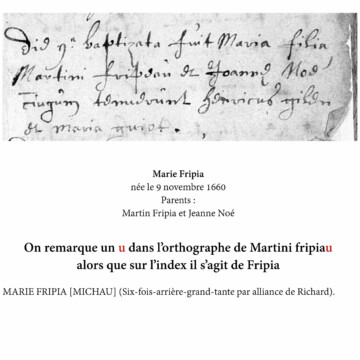 Did 9ª baptizata fuit Maria filia
Martini fripiau et Joannę Noé
et maria
Marie Fripia
née le 9 novembre 1660
Parents :
Martin Fripia et Jeanne Noé
On remarque un u dans l’orthographe de Martini fripiau
alors que sur l’index il s’agit de Fripia
MARIE FRIPIA [MICHAU] (Six-fois-arrière-grand-tante par alliance de Richard).